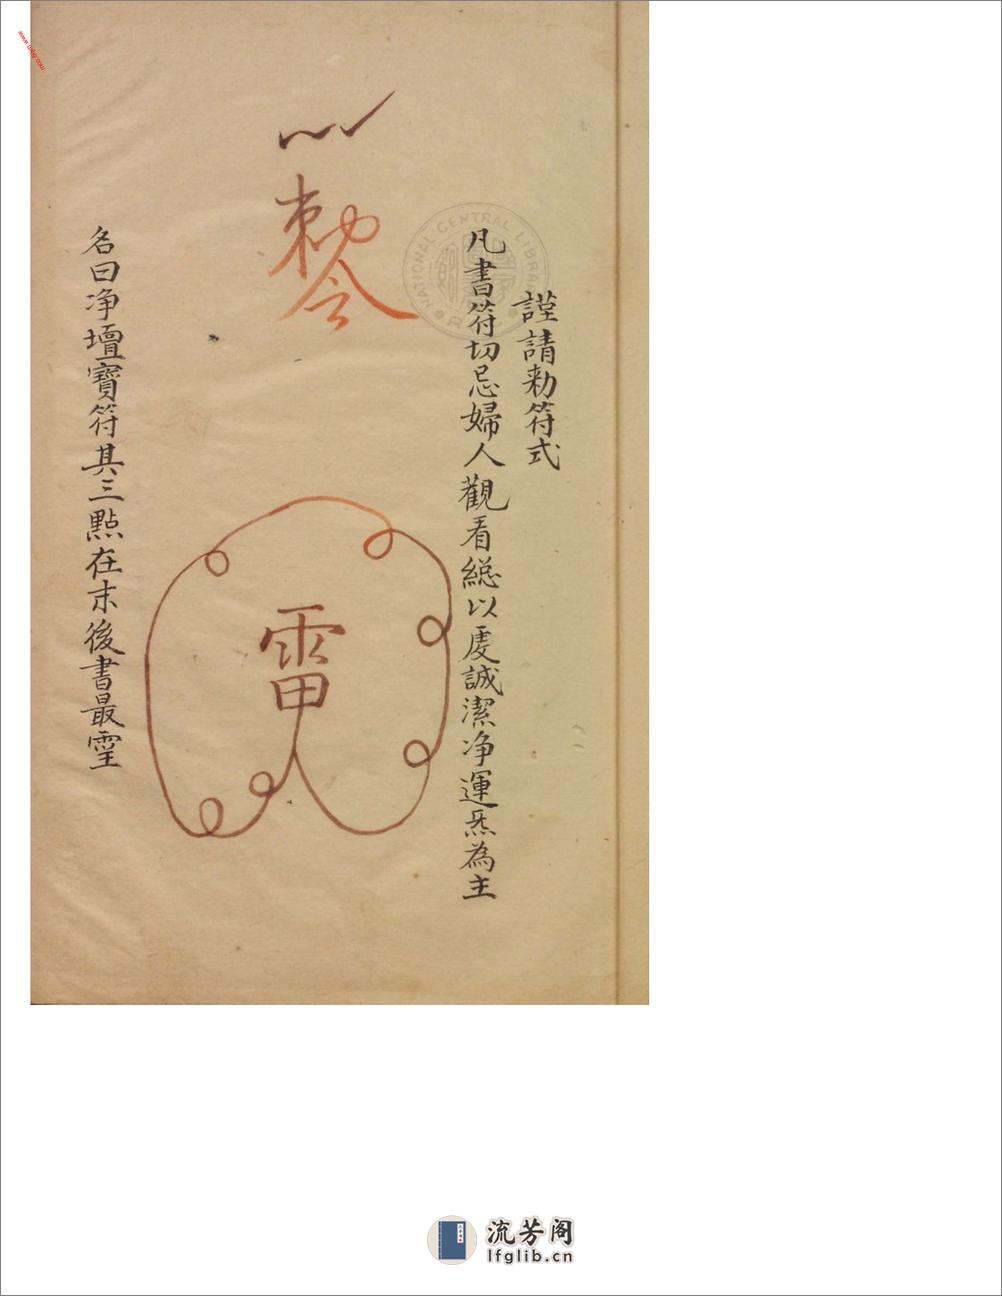 謹請勅符式
凡書符切忌婦人觀看緫以虔誠潔净運炁為主
勅令
雷
名曰净壇寶符其三點在末後書最靈
NATIONAL CENTRAL LIBRARY
流芳阁
lfglib.cn